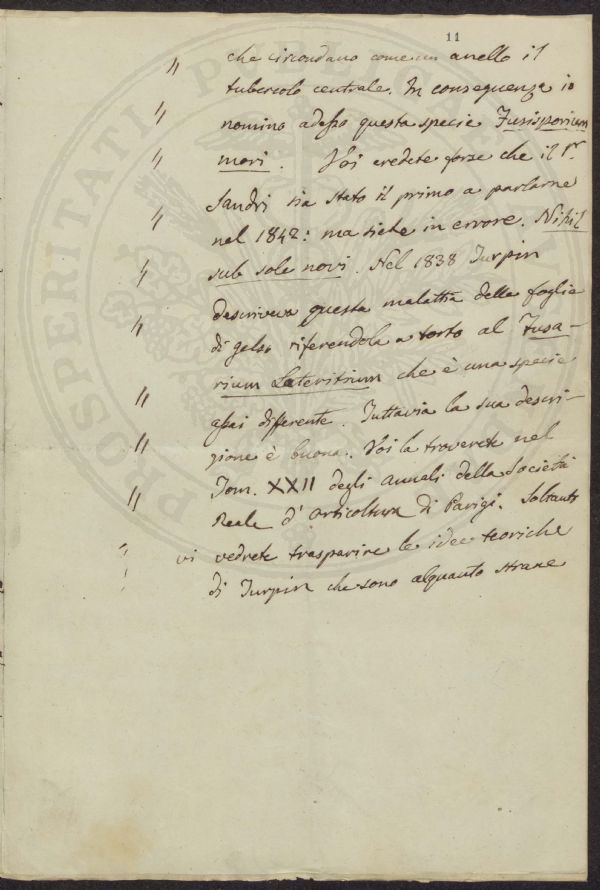 11
" che circondano come un anello il
tubercolo centrale. In conseguenza io
" nomino adesso questa specie Fusisporium
" mori. Voi credete forse che il Pr.
Sandri sia stato il primo a parlarne
" nel 1842: ma siete in errore. Nihil
" sub sole novi. Nel 1838 Turpin
descriveva questa malattia della foglia
" di gelso riferendola a torto al Fusa-
rium Lateritium che è una specie
" assai differente. Tuttavia la sua descri-
" zione è buona. Voi la troverete nel
" Tom. XXII degli annali della Società
Reale d'orticoltura di Parigi. Soltanto
vi vedrete trasparire le idee teoriche
di Turpin che sono alquanto strane
PROSPERITATI PUBLICAE